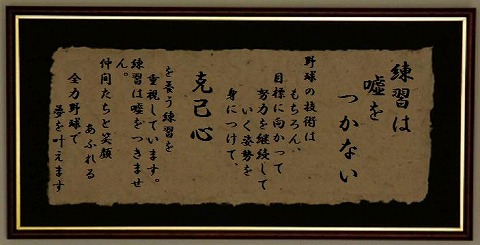 練習は
嘘を
つかない
野球の技術は
もちろん、
目標に向かって
努力を継続して
いく姿勢を
身につけて、
克己心
を養う練習を
重視しています。
練習は嘘をつきませ
ん。
仲間たちと笑顔
あふれる
全力野球で
夢を叶えます